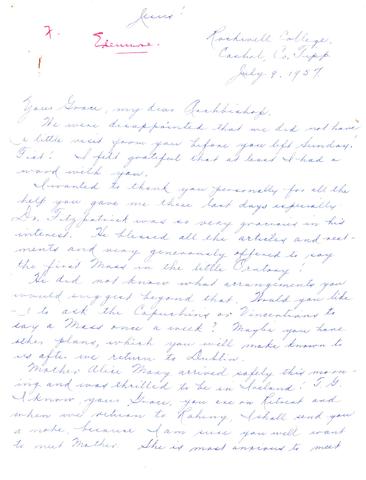 Jesus!
Rockwell College,
Cashel, Co. Tipp
July 9, 1957.
Your Grace, my dear Archbishop,
We were disappointed that we did not have
a little visit from you before you left Sunday.
Fiat! I felt grateful that at least I had a
word with you.
I wanted to thank you personally for all the
help you gave me these last days especially
Dr. Fitzpatrick was so very gracious in his
interest. He blessed all the articles and vest-
ments and very generously offered to say
the first Mass in the little Oratory!
He did not know what arrangements you
would suggest beyond that. Would you like
to ask the Capuchins or Vincentians to
say a Mass once a week? Maybe you have
other plans, which you will make known to
us after we return to Dublin.
Mother Alice Mary arrived safely this morn-
ing and was thrilled to be in Ireland! T.G.
I know, your Grace, you are on Retreat and
when we return to Raheny I shall send you
a note, because I am sure you will want
to meet Mother. She is most anxious to meet